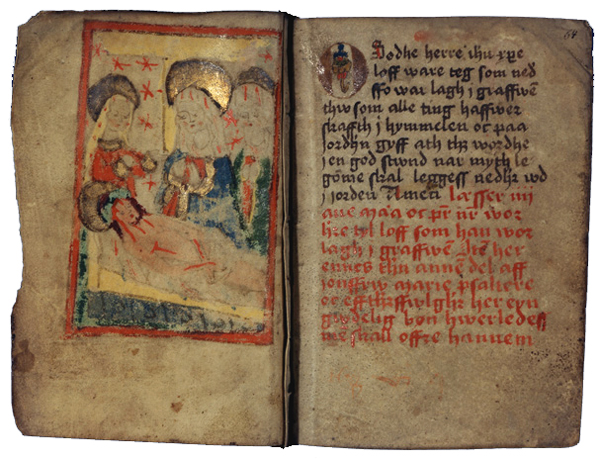 64
Godhe herre ihu xpe
loff ware teg som ned
ffo war lagh i graffwē
thw som alle ting haffwer
skaffth i hymmelen oc paa
Jordhn gyff ath th wordhe
i en god stwnd nar myth le
gome skal leggess nedhr wd
i jorden Amen Læsser iiij
aue ma'a oc pr nr wor
hre tyl loff som han wor
lagh i graffwē her
ennes thn annē del aff
jomffrw marie psaltere
oc effthrffwlghr her eyn
gwdelig bøn hwerledess
mē skall offre hannem